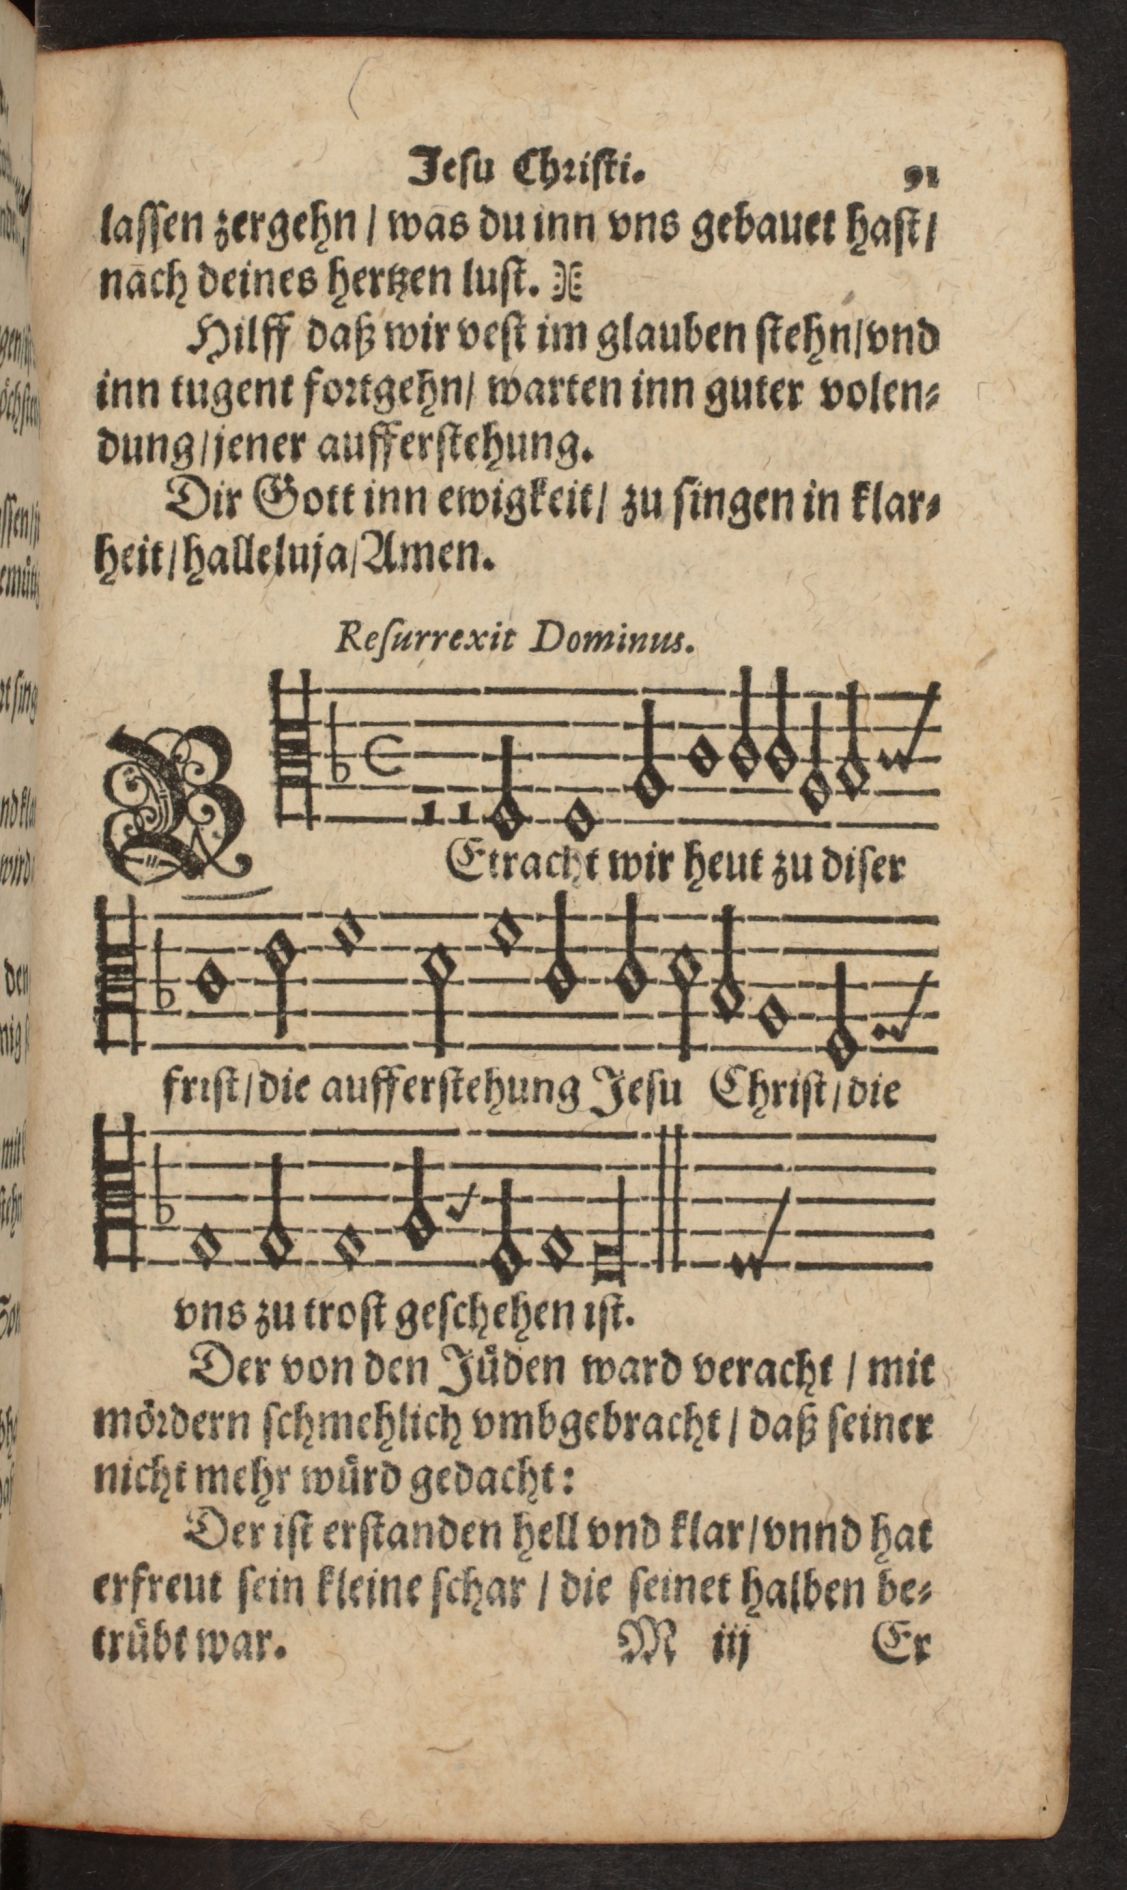 Jesu Christi. 91
lassen zergehn / was du inn vns gebauet hast /
nach deines hertzen lust.
Hilff daß wir vest im glauben stehn / vnd
inn tugent fortgehn / warten inn guter volen⸗
dung / jener aufferstehung.
Dir Gott inn ewigkeit / zu singen in klar⸗
heit / halleluja / Amen.
Resurrexit Dominus.
BEtracht wir heut zu diser
frist / die aufferstehung Jesu Christ / die
vns zu trost geschehen ist.
Der von den Jüden ward veracht / mit
mördern schmehlich vmbgebracht / daß seiner
nicht mehr würd gedacht:
Der ist erstanden hell vnd klar / vnnd hat
erfreut sein kleine schar / die seinet halben be⸗
trübt war. M iij Er